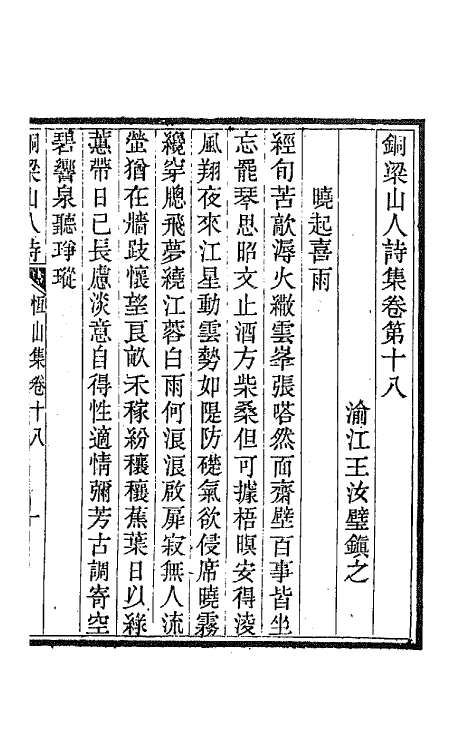 銅梁山人詩集卷第十八
渝江王汝璧鎮之
曉起喜雨
經旬苦歊溽火繖雲峯張嗒然面齋壁百事皆坐
忘罷琴思昭文止酒方柴桑但可據梧暝安得淩
風翔夜來江星動雲勢如隄防礎氣欲侵席曉霧
纔穿牕飛夢繞江蓉白雨何浪浪啟扉寂無人流
螢猶在牆跂懷望艮畝禾稼紛穰穰蕉葉日以綠
蕙帶日已長慮淡意自得性適情彌芳古調寄空
碧響泉聽琤瑽
銅梁山人詩 恒山集卷十八 一